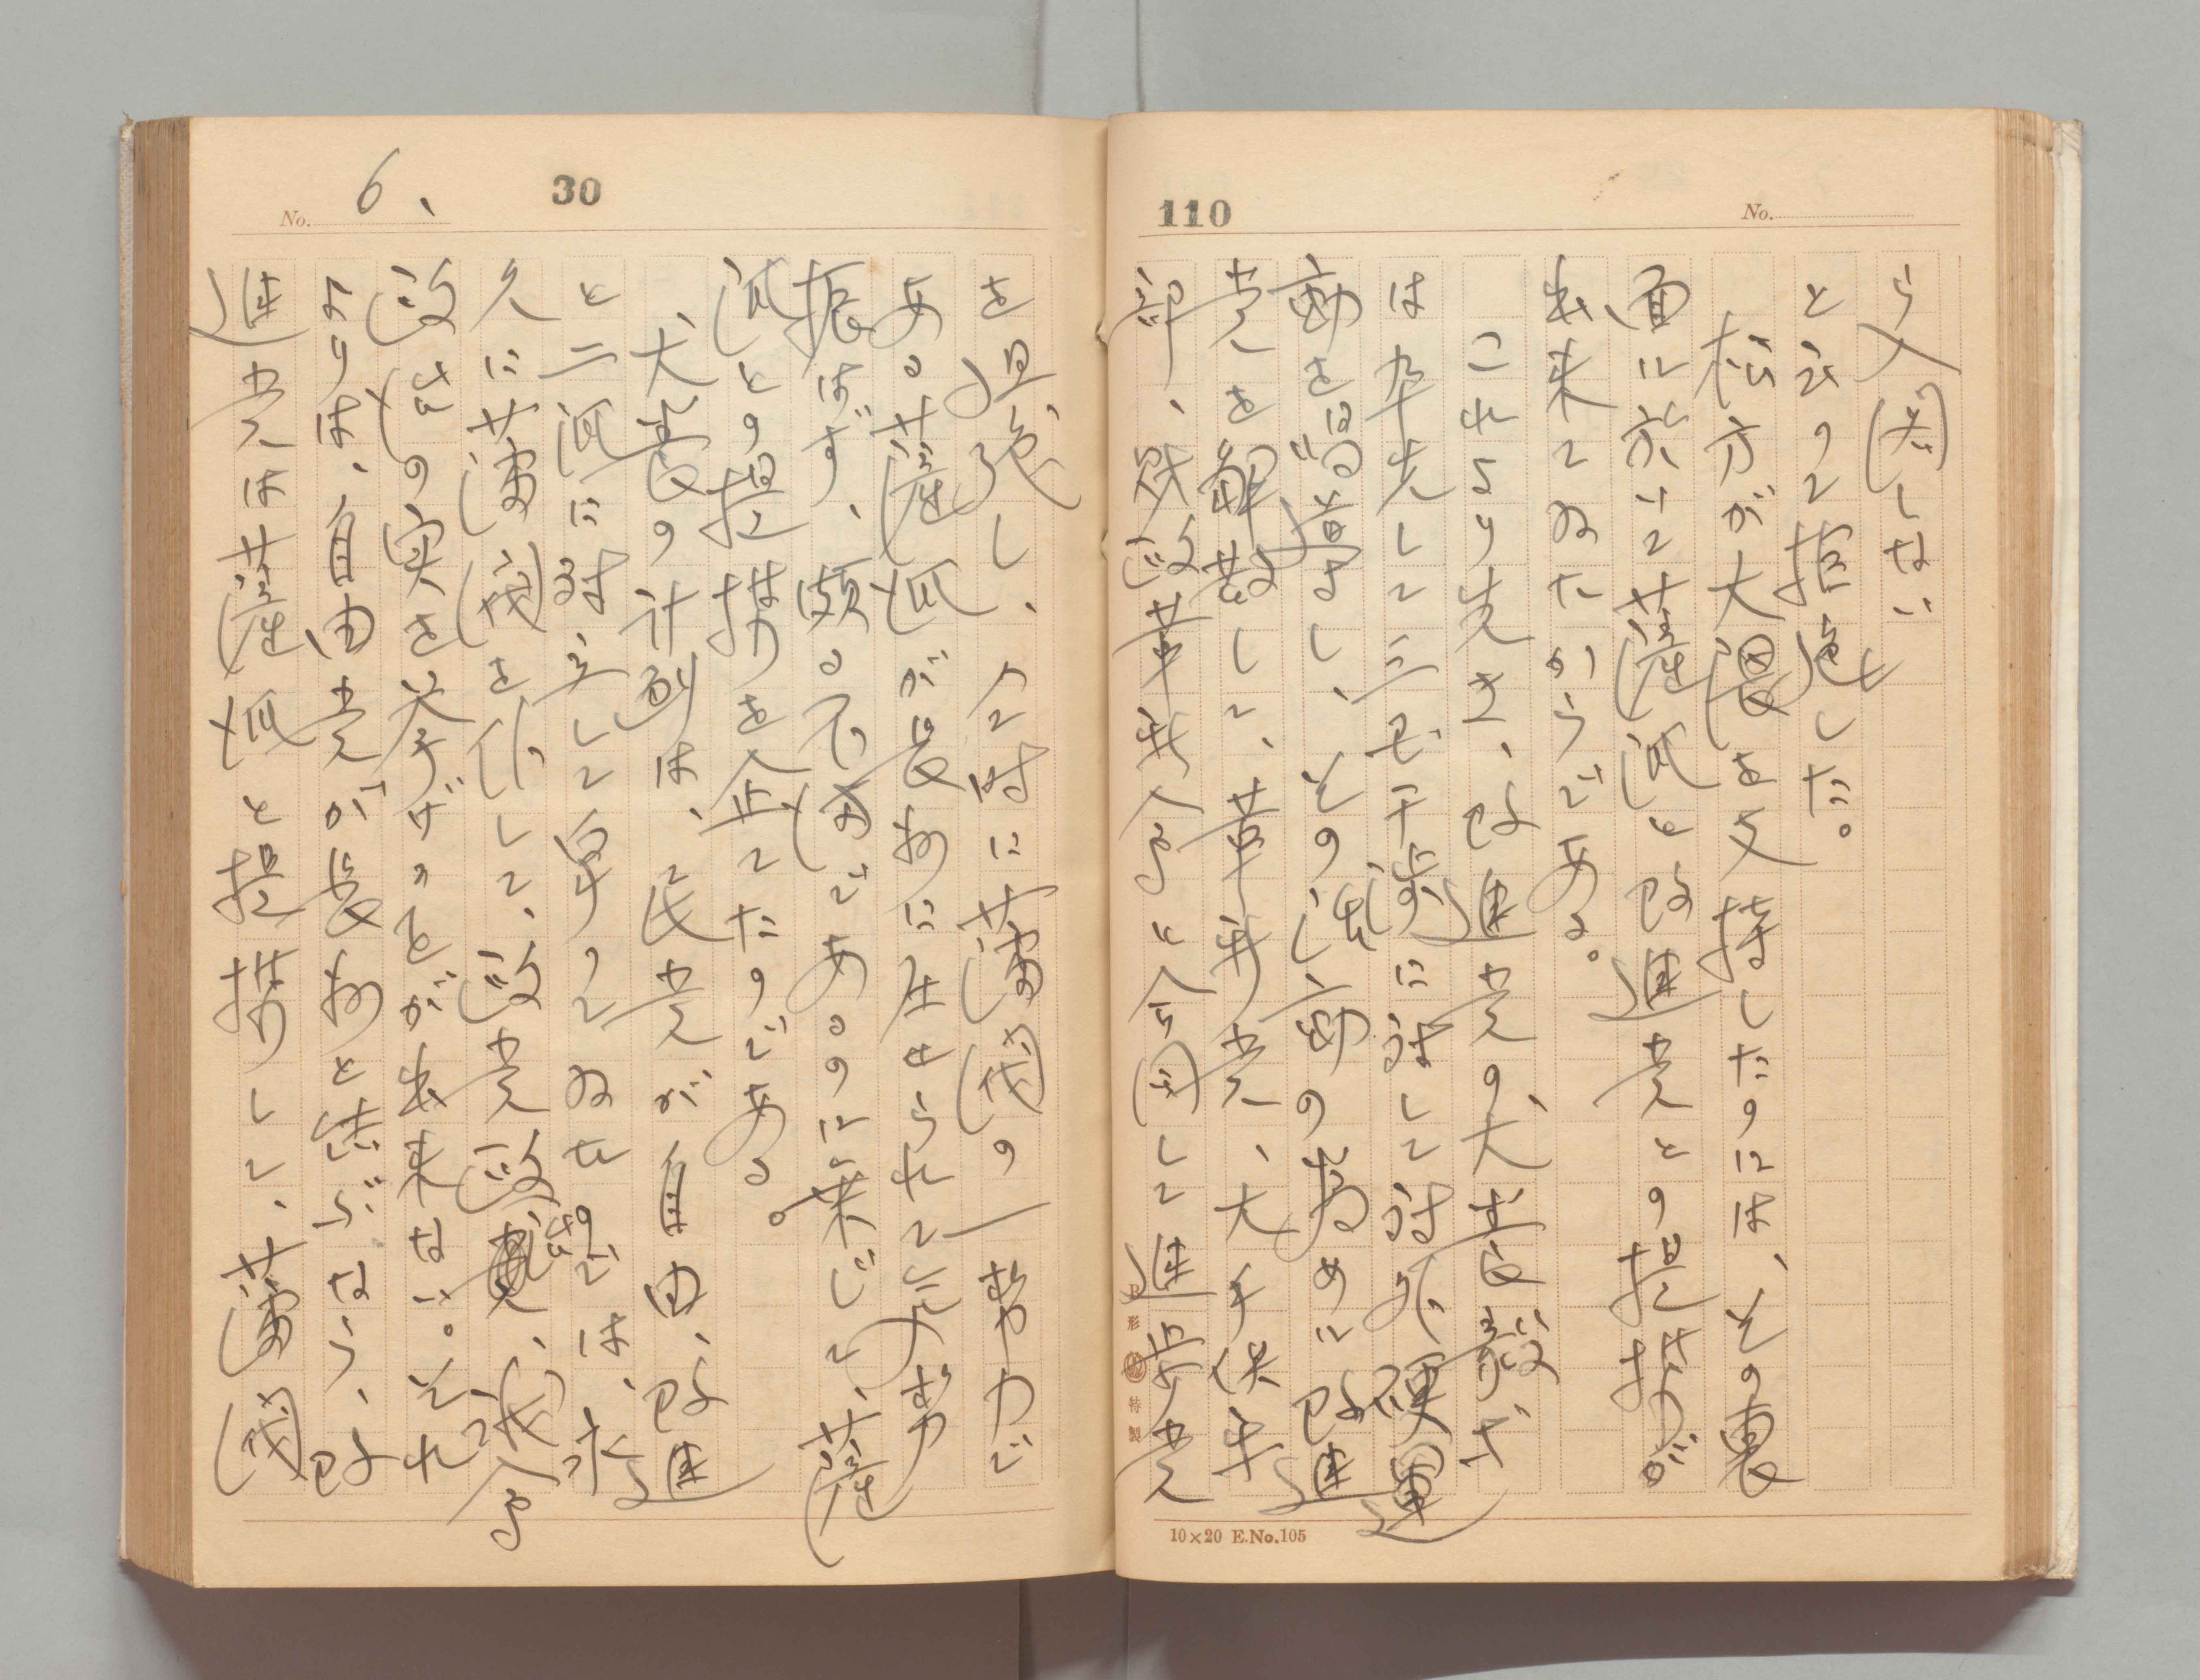 110
No.
ら入閣しない
と云つて拒絶した。
松方が大隈を支持したのには、その裏
面に於いて薩派と改進党との提携が
出来てゐたからである。
これより先き、改進党の、犬養毅ザ
は卒先して三国干渉に対して対外硬運
動を唱導し、その活動の為めに改進
党を解散して、革新党、大手倶楽
部、財政革新会と合同して進歩党
10×20 E.No.105
30
No. 6、
を組織し、一つは時に藩閥の一勢力で
ある薩派が長州に圧せられて元勢
振はず、頗る不満であるのに乗じて、薩
派との提携を企てたのである。
犬養の計劃は、民党が自由、改進
と二派に対立して争つてゐたのでは、永
久に藩閥を倒して、政党政治、議会
政治の実を挙げることが出来ない。それ
よりは、自由党が長州と結ぶなら、改
進党は薩派と提携して、藩閥